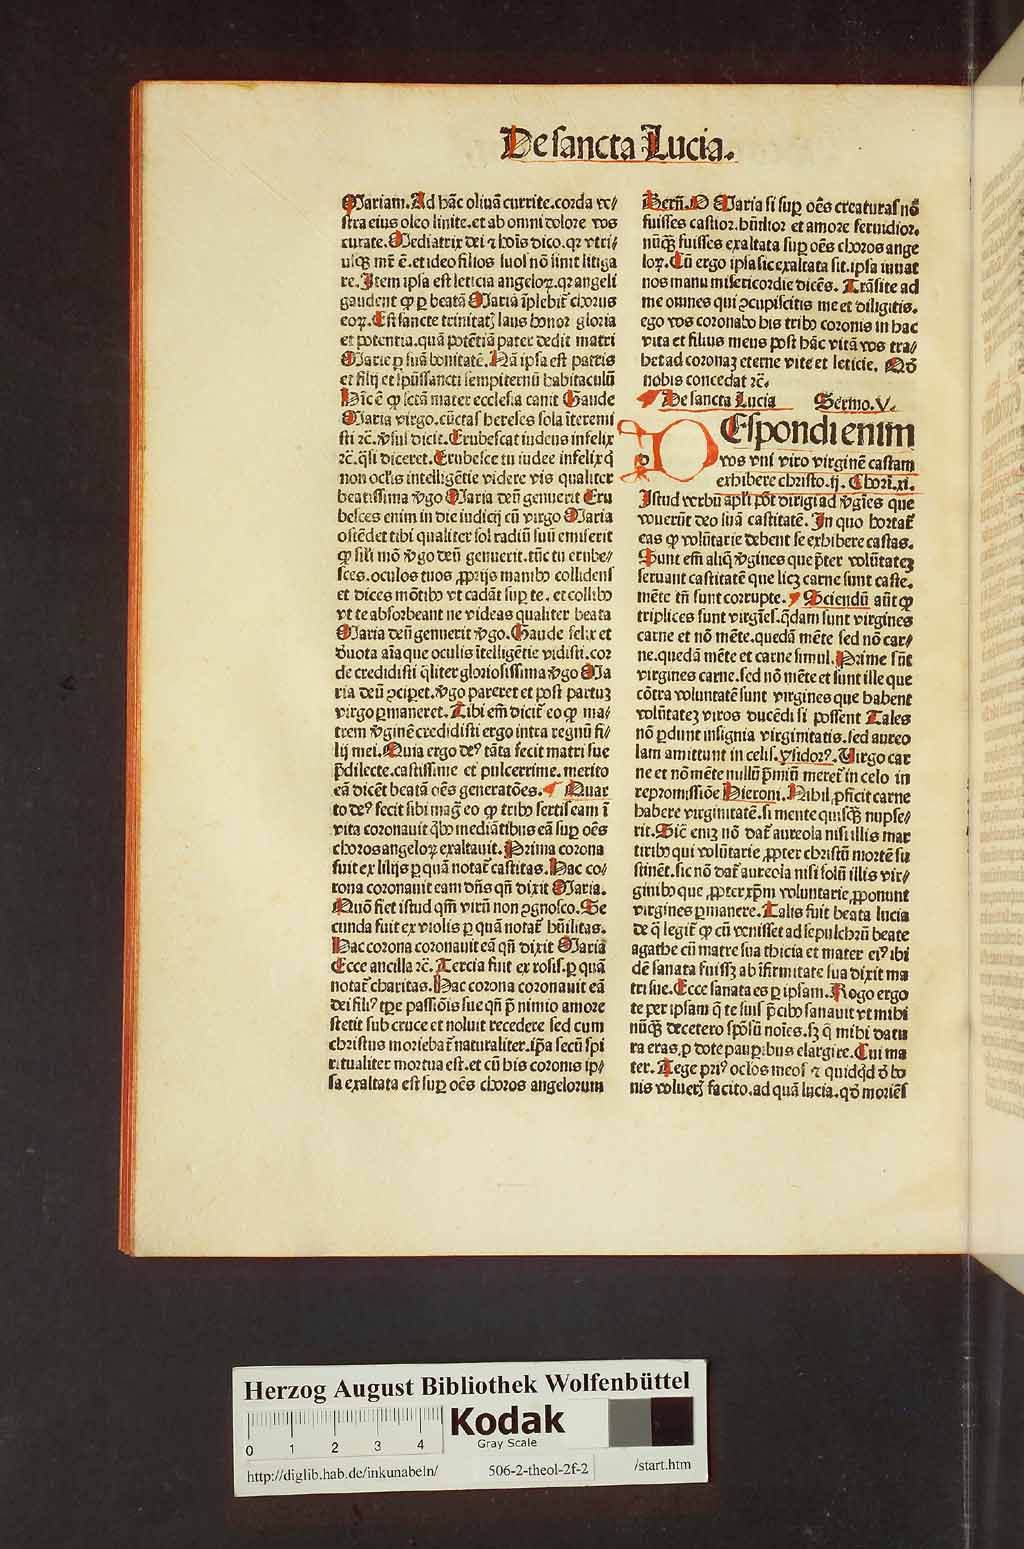 De sancta Lucia.
Mariam. Ad hāc olivā currite. corda ve/
stra eius oleo linite. et ab omni dolore vos
curate. Mediatrix dei ⁊ hoīs dico. qꝛ vtri/
ulqꝫ mr̄ ē. et ideo filios suos nō sinit litiga
re. Item ipsa est leticia angeloꝝ. qꝛ angeli
gaudent ꝙ ꝑ beatā Maria īplebit̄ chorus
eoꝝ. Est sancte trinitatꝭ laus honor gloria
et potentia. quā potētiā pater dedit matri
Marie ꝑ suā bonitatē. Nā ipsa est patris
et filij et spūssancti sempiternū habitaculū
Hīc ē ꝙ sctā mater ecclesia canit Gaude
Maria virgo. cūctas hereses sola īteremi
sti ⁊c̄. v̄sul dicit. Erubescat iudeus infelix
⁊c̄. q̄si diceret. Erubesce tu iudee infelix q̄
non oclis intelligētie videre vis qualiter
beatissima v̄go Maria deū genuerit Eru
besces enim in die iudicij cū virgo Maria
ostēdet tibi qualiter sol radiū suū emiserit
ꝙ sili mō v̄go deū genuerit. tūc tu erube/
sces. oculos tuos ꝓprijs manibꝰ collidens
et dices mōtibꝰ vt cadāt suꝑ te. et collibꝰ
vt te absorbeant ne videas qualiter beata
Maria deū genuerit v̄go. Gaude felix et
d̄uota aīa que oculis ītelligētie vidisti. cor
de credidisti q̄liter gloriosissima v̄go Ma
ria deū ꝯciꝑet. v̄go pareret et post partuꝫ
virgo ꝑmaneret. Tibi em̄ dicit̄ eo ꝙ ma/
trem v̄ginē credidisti ergo intra regnū fi/
lij mei. Quia ergo deꝰ tāta fecit matri sue
p̄dilecte. castissime et pulcerrime. merito
eā dicēt beatā oēs generatōes. ¶ Quar
to deꝰ fecit sibi maḡ eo ꝙ tribꝰ sertis eam ī
vita coronauit q̄bꝰ mediātibus eā suꝑ oēs
choros angeloꝝ exaltauit. Prima corona
fuit ex lilijs ꝑ quā notat̄ castitas. Hac co/
rona coronauit eam dn̄s qn̄ dixit Maria.
Quō fiet istud qm̄ virū non ꝯgnosco. Se
cunda fuit ex violis ꝑ quā notat̄ hūilitas.
Hac corona coronauit eā qn̄ dixit Maria
Ecce ancilla ⁊c̄. Tercia fuit ex rosis. ꝑ quā
notat̄ charitas. Hac corona coronauit eā
dei filiꝰ tꝑe passiōis sue qn̄ p̄ nimio amore
stetit sub cruce et noluit recedere sed cum
christus moriebat̄ naturaliter. ip̄a secū spi
ritualiter mortua est. et cū his coronis ip/
sa exaltata est suꝑ oēs choros angelorum
Bern̄. O Maria si suꝑ oēs creaturas nō
fuisses castior. hūlior et amore feruidior.
nūqꝫ fuisses exaltata suꝑ oēs choros ange
loꝝ. Cū ergo ipsa sic exaltata sit. ipsa iuuat
nos manu misericordie dicēs. Trāsite ad
me omnes qui ꝯcupiscitis me et diligitis.
ego vos coronabo his tribꝰ coronis in hac
vita et filius meus post hāc vitā vos tra/
het ad coronaꝫ eterne vite et leticie. Qd̄
nobis concedat ⁊c̄.
¶ De sancta Lucia Sermo. V.
DEspondi enim
vos vni viro virginē castam
exhibere christo. ij. Chori. xi.
Istud verbū apl̓i pōt dirigi ad v̄gīes que
vouerūt deo suā castitatē. In quo hortat̄
eas ꝙ volūtarie debent se exhibere castas.
Sunt em̄ aliq̄ v̄gines que p̄ter volūtateꝫ
seruant castitatē que licꝫ carne sunt caste.
mēte tn̄ sunt corrupte. ¶ Sciendū aūt ꝙ
triplices sunt virgīes. q̄dam sunt virgines
carne et nō mēte. quedā mēte sed nō car/
ne. quedā mēte et carne simul. Prime sūt
virgines carne. sed nō mēte et sunt ille que
cōtra voluntatē sunt virgines que habent
volūtateꝫ viros ducēdi si possent Tales
nō ꝑdunt insignia virginitatis. sed aureo
lam amittunt in celis. ysidorꝰ. Virgo car
ne et nō mēte nullū p̄miū meret̄ in celo in
repromissiōe Hieroni. Nihil ꝓficit carne
habere virginitatē. si mente quisqꝫ nupse/
rit. Sic̄ eniꝫ nō dat̄ aureola nisi illis mar
tiribꝰ qui volūtarie ꝓpter christū mortē su
stinēt. sic nō dat̄ aureola nisi solū illis vir/
ginibꝰ que ꝓpter xp̄m voluntarie ꝓponunt
virgines ꝑmanere. Talis fuit beata lucia
de q̄ legit̄ ꝙ cū venisset ad sepulchrū beate
agathe cū matre sua thicia et mater eiꝰ ibi
dē sanata fuissꝫ ab īfirmitate sua dixit ma
tri sue. Ecce sanata es ꝑ ipsam. Rogo ergo
te per ipsam q̄ te suis p̄cibꝰ sanauit vt mihi
nūqꝫ decetero spōsū noīes. sꝫ q̄ mihi datu
ra eras. ꝓ dote pauꝑibus elargire. Cui ma
ter. Tege priꝰ oclos meos ⁊ quidqd̄ d̄ bo
nis volueꝭ facito. ad quā lucia. qd̄ moriēs
Herzog August Bibliothek Wolfenbüttel
0 1 2 3 4
Kodak
Gray Scale
http://diglib.hab.de/inkunabeln/ 506-2-theol-2f-2 /start.htm